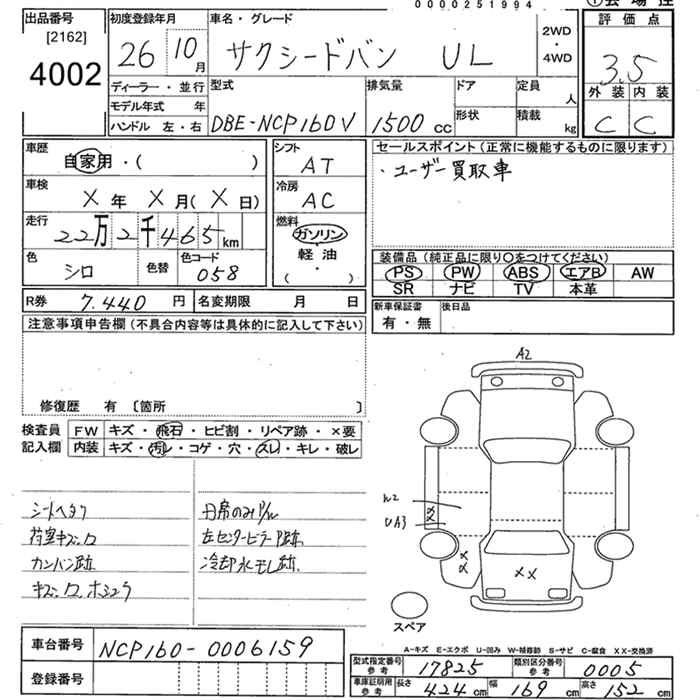 0000251994
出品番号
[2162]
4002
初度登録年月
26 10月
車名・グレード
サクシードバン UL
2WD
・
4WD
評価点
3.5
外装 内装
C C
ディーラー・並行
モデル年式 年
ハンドル 左・右
型式
DBE-NCP160V
排気量
1500 cc
ドア
形状
定員
人
積載
kg
車歴
自家用・( )
車検
X 年 X 月( X 日)
走行
22万2千465km
色
シロ
色替
色コード
058
シフト
AT
冷房
AC
燃料
ガソリン
軽油
( )
セールスポイント(正常に機能するものに限ります)
・ユーザー買取車
装備品(純正品に限り○をつけてください)
PS PW ABS エアB AW
SR ナビ TV 本革
新車保証書
有・無
後日品
R券 7.440 円
名変期限 月 日
注意事項申告欄(不具合内容等は具体的に記入して下さい)
修復歴 有 〔箇所 〕
検査員
記入欄
FW キズ・飛石・ヒビ割・リペア跡・×要
内装 キズ・汚レ・コゲ・穴・スレ・キレ・破レ
シートヘタリ
荷室キズ、凹
カンバン跡
キズ、凹、ホシュウ
左センターピラー
冷却水モレ跡
A2
W2
UA3
XX
XX
XX
スペア
A-キズ E-エクボ U-凹み W-補修跡 S-サビ C-腐食 XX-交換済
車台番号 NCP160-0006159
登録番号
型式指定番号
参考
17825
類別区分番号
参考
0005
車庫証明用
参考
長さ 424 cm 幅 169 cm 高さ 152 cm